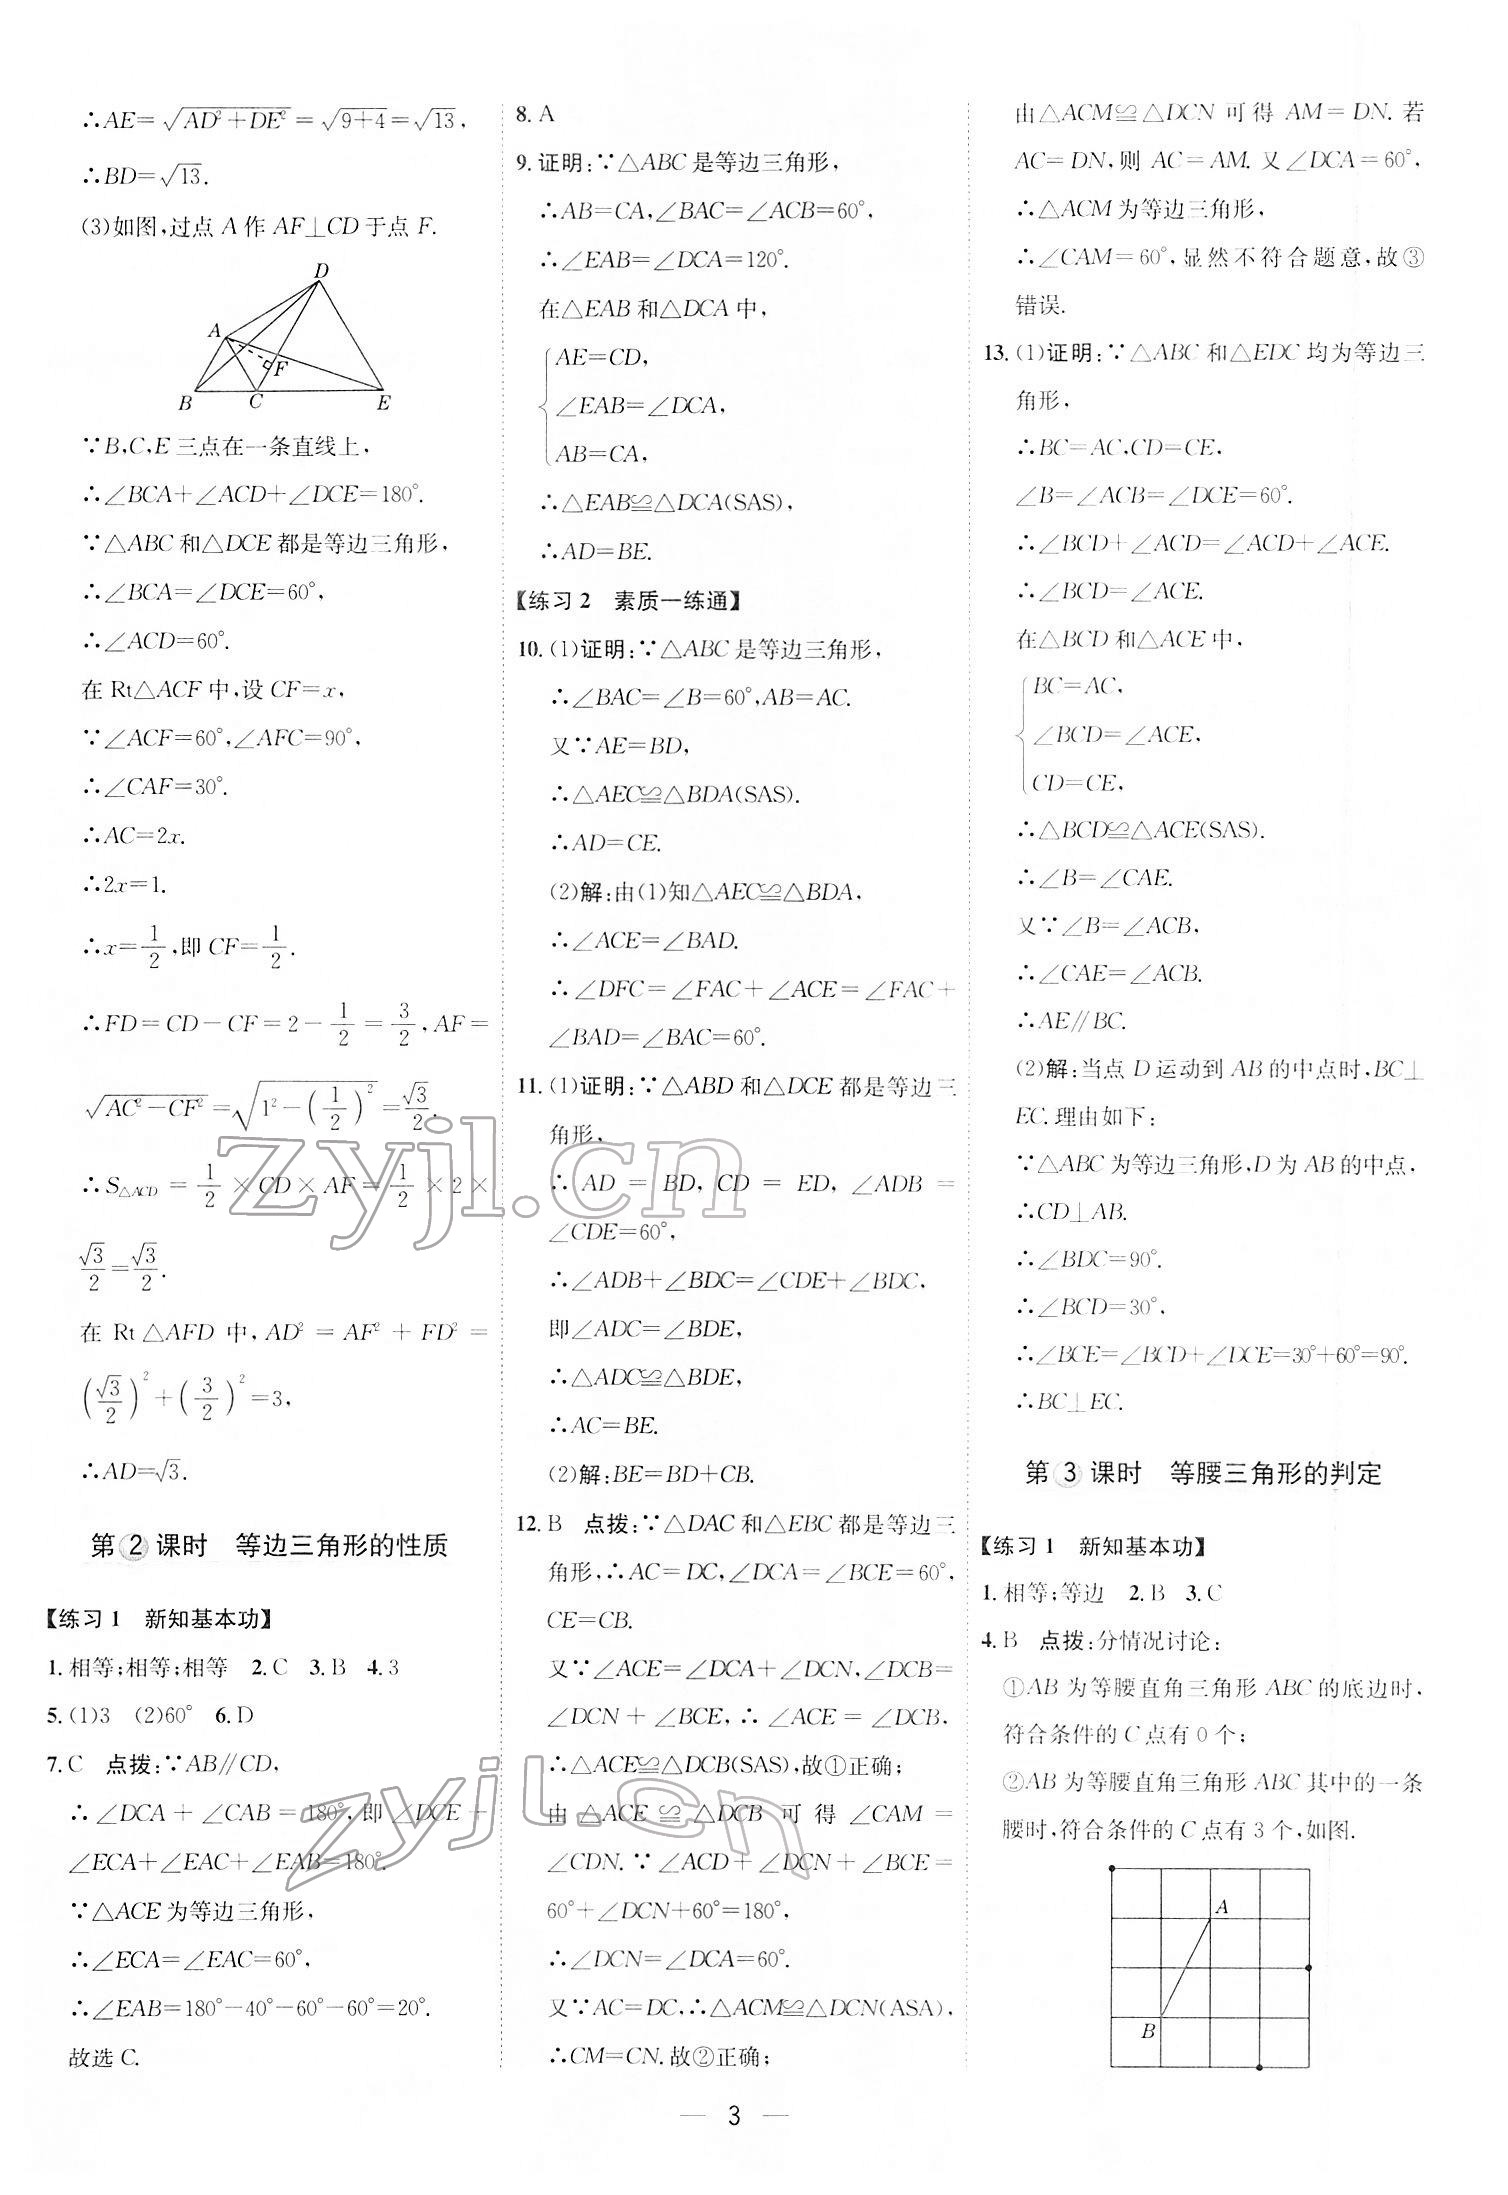 ∴AE=√(AD²+DE²)=√(9+4)=√13,
∴BD=√13.
(3)如图,过点 A 作 AF⊥CD 于点 F.
D
A
F
B C E
∵B,C,E 三点在一条直线上,
∴∠BCA+∠ACD+∠DCE=180°.
∵△ABC 和△DCE 都是等边三角形,
∴∠BCA=∠DCE=60°,
∴∠ACD=60°.
在 Rt△ACF 中,设 CF=x,
∵∠ACF=60°,∠AFC=90°,
∴∠CAF=30°.
∴AC=2x.
∴2x=1.
∴x=1/2,即 CF=1/2.
∴FD=CD-CF=2-1/2=3/2,AF=
√(AC²-CF²)=√(1²-(1/2)²)=√3/2.
∴S△ACD=1/2×CD×AF=1/2×2×
√3/2=√3/2.
在 Rt△AFD 中,AD²=AF²+FD²=
(√3/2)²+(3/2)²=3,
∴AD=√3.
第2课时 等边三角形的性质
【练习1 新知基本功】
1.相等;相等;相等 2.C 3.B 4.3
5.(1)3 (2)60° 6.D
7.C 点拨:∵AB∥CD,
∴∠DCA+∠CAB=180°,即∠DCE+
∠ECA+∠EAC+∠EAB=180°.
∵△ACE 为等边三角形,
∴∠ECA=∠EAC=60°,
∴∠EAB=180°-40°-60°-60°=20°.
故选 C.
8.A
9.证明:∵△ABC 是等边三角形,
∴AB=CA,∠BAC=∠ACB=60°,
∴∠EAB=∠DCA=120°.
在△EAB 和△DCA 中,
AE=CD,
∠EAB=∠DCA,
AB=CA,
∴△EAB≌△DCA(SAS),
∴AD=BE.
【练习2 素质一练通】
10.(1)证明:∵△ABC 是等边三角形,
∴∠BAC=∠B=60°,AB=AC.
又∵AE=BD,
∴△AEC≌△BDA(SAS).
∴AD=CE.
(2)解:由(1)知△AEC≌△BDA,
∴∠ACE=∠BAD.
∴∠DFC=∠FAC+∠ACE=∠FAC+
∠BAD=∠BAC=60°.
11.(1)证明:∵△ABD 和△DCE 都是等边三
角形,
∴AD=BD,CD=ED,∠ADB=
∠CDE=60°,
∴∠ADB+∠BDC=∠CDE+∠BDC,
即∠ADC=∠BDE,
∴△ADC≌△BDE,
∴AC=BE.
(2)解:BE=BD+CB.
12.B 点拨:∵△DAC 和△EBC 都是等边三
角形,∴AC=DC,∠DCA=∠BCE=60°,
CE=CB.
又∵∠ACE=∠DCA+∠DCN,∠DCB=
∠DCN+∠BCE,∴∠ACE=∠DCB,
∴△ACE≌△DCB(SAS),故①正确;
由△ACE≌△DCB 可得∠CAM=
∠CDN.∵∠ACD+∠DCN+∠BCE=
60°+∠DCN+60°=180°,
∴∠DCN=∠DCA=60°.
又∵AC=DC,∴△ACM≌△DCN(ASA),
∴CM=CN.故②正确;
由△ACM≌△DCN 可得 AM=DN.若
AC=DN,则 AC=AM.又∠DCA=60°,
∴△ACM 为等边三角形,
∴∠CAM=60°,显然不符合题意,故③
错误.
13.(1)证明:∵△ABC 和△EDC 均为等边三
角形,
∴BC=AC,CD=CE,
∠B=∠ACB=∠DCE=60°.
∴∠BCD+∠ACD=∠ACD+∠ACE.
∴∠BCD=∠ACE.
在△BCD 和△ACE 中,
BC=AC,
∠BCD=∠ACE,
CD=CE,
∴△BCD≌△ACE(SAS).
∴∠B=∠CAE.
又∵∠B=∠ACB,
∴∠CAE=∠ACB.
∴AE∥BC.
(2)解:当点 D 运动到 AB 的中点时,BC⊥
EC.理由如下:
∵△ABC 为等边三角形,D 为 AB 的中点,
∴CD⊥AB.
∴∠BDC=90°.
∴∠BCD=30°,
∴∠BCE=∠BCD+∠DCE=30°+60°=90°.
∴BC⊥EC.
第3课时 等腰三角形的判定
【练习1 新知基本功】
1.相等;等边 2.B 3.C
4.B 点拨:分情况讨论:
①AB 为等腰直角三角形 ABC 的底边时,
符合条件的 C 点有 0 个;
②AB 为等腰直角三角形 ABC 其中的一条
腰时,符合条件的 C 点有 3 个,如图.
A
B
zyjl.cn
zyjl.cn
— 3 —